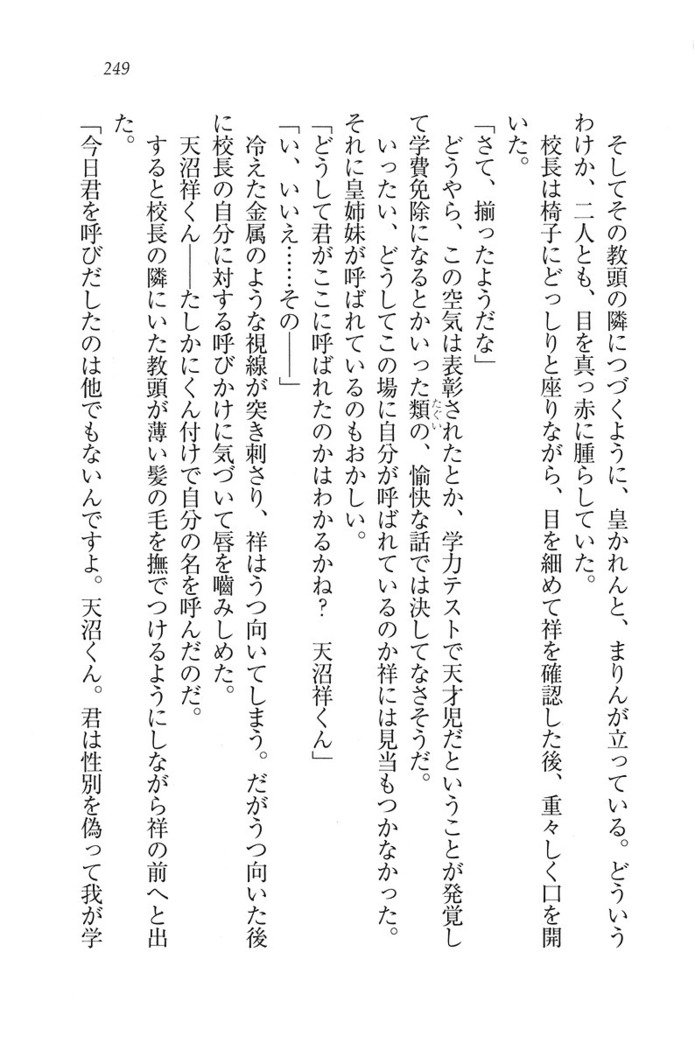 249
そしてその教頭の隣につづくように、皇かれんと、まりんが立っている。どういう
わけか、二人とも、目を真っ赤に腫らしていた。
校長は椅子にどっしりと座りながら、目を細めて祥を確認した後、重々しく口を開
いた。
「さて、揃ったようだな」
どうやら、この空気は表彰されたとか、学力テストで天才児だということが発覚し
て学費免除になるとかいった類の、愉快な話では決してなさそうだ。
たぐい
いったい、どうしてこの場に自分が呼ばれているのか祥には見当もつかなかった。
それに皇姉妹が呼ばれているのもおかしい。
「どうして君がここに呼ばれたのかはわかるかね？　天沼祥くん」
「い、いいえ……その――」
冷えた金属のような視線が突き刺さり、祥はうつ向いてしまう。だがうつ向いた後
に校長の自分に対する呼びかけに気づいて唇を嚙みしめた。
天沼祥くん――たしかにくん付けで自分の名を呼んだのだ。
すると校長の隣にいた教頭が薄い髪の毛を撫でつけるようにしながら祥の前へと出
た。
「今日君を呼びだしたのは他でもないんですよ。天沼くん。君は性別を偽って我が学